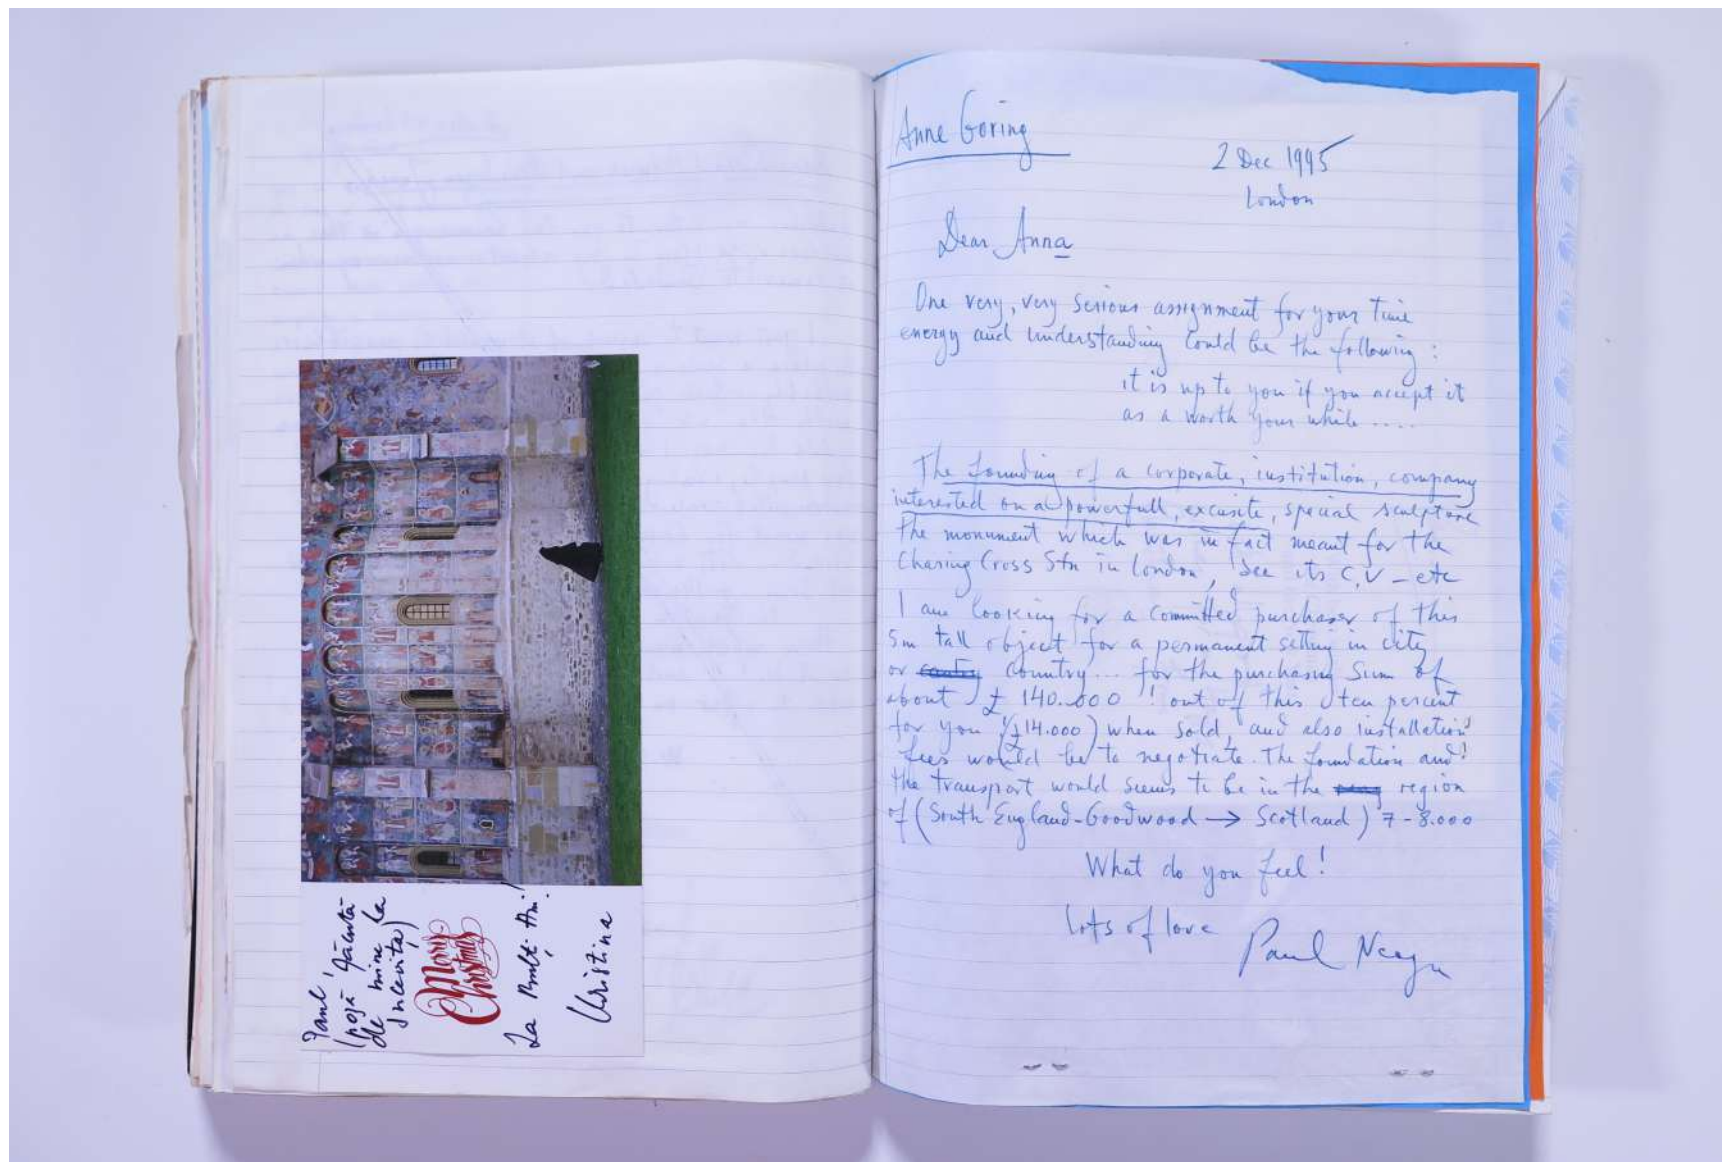 Paul,
(poză făcută
de mine la
Sucevița)
Merry
Christmas
La Mulți Ani!
Christina
Anne Goring
2 Dec 1995
London
Dear Anna
One very, very serious assignment for your time
energy and understanding could be the following :
it is up to you if you accept it
as a worth your while ....
The founding of a corporate, institution, company
interested on a powerfull, excusite, special sculpture
the monument which was in fact meant for the
Charing Cross Stn in London, See its C,V - etc
I am looking for a committed purchaser of this
5m tall object for a permanent setting in city
or country ... for the purchasing sum of
about £ 140.000 ! out of this ten percent
for you (£14.000) when sold, and also installation
fees would be to negotiate. The foundation and
the transport would seems to be in the region
of (South England-Goodwood → Scotland) 7-8.000
What do you feel !
Lots of love
Paul Neagu